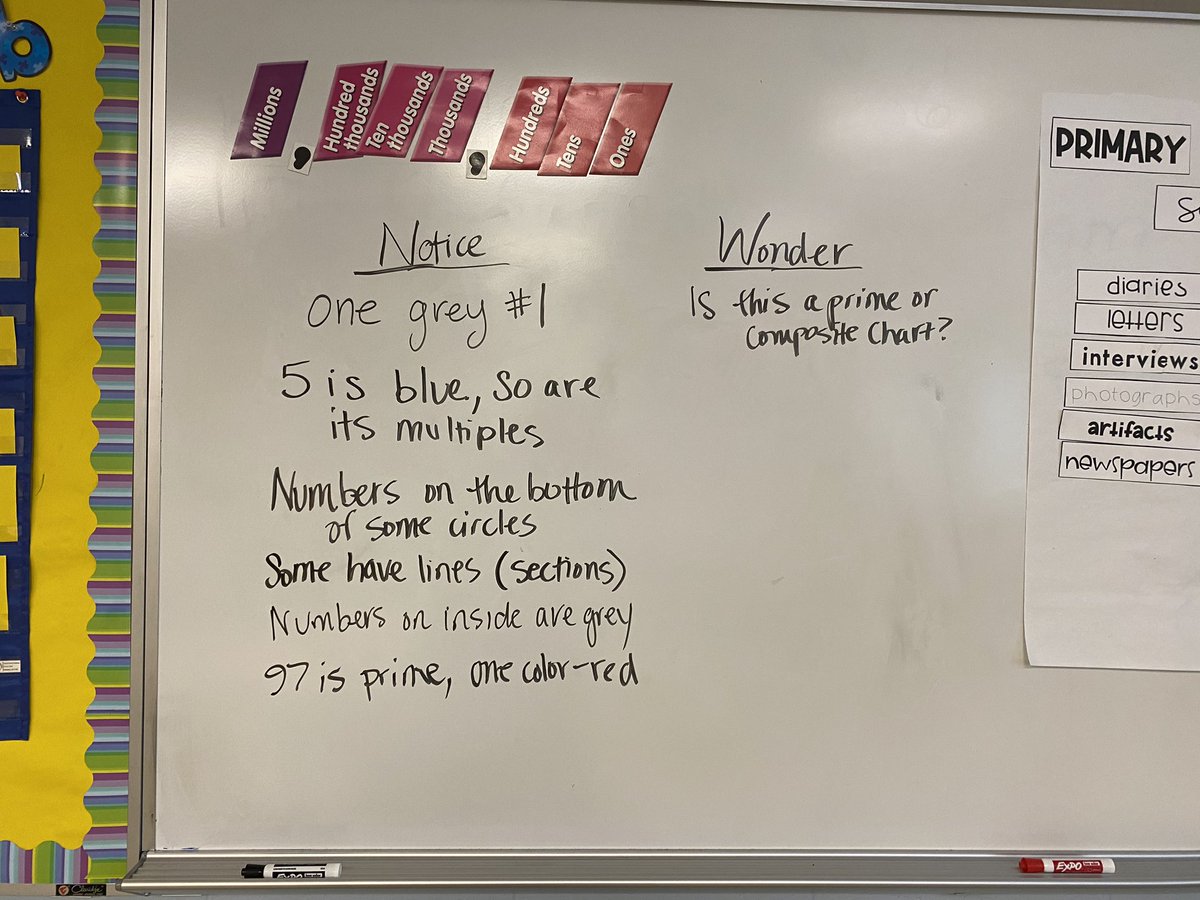 Millions
,
Hundred
thousands
Ten
thousands
Thousands
,
Hundreds
Tens
Ones
PRIMARY
Notice
Wonder
One grey #1
Is this a prime or
composite chart?
5 is blue, so are
its multiples
Numbers on the bottom
of some circles
Some have lines (sections)
Numbers on inside are grey
97 is prime, one color-red
diaries
letters
interviews
photographs
artifacts
newspapers
EXPO
EXPO